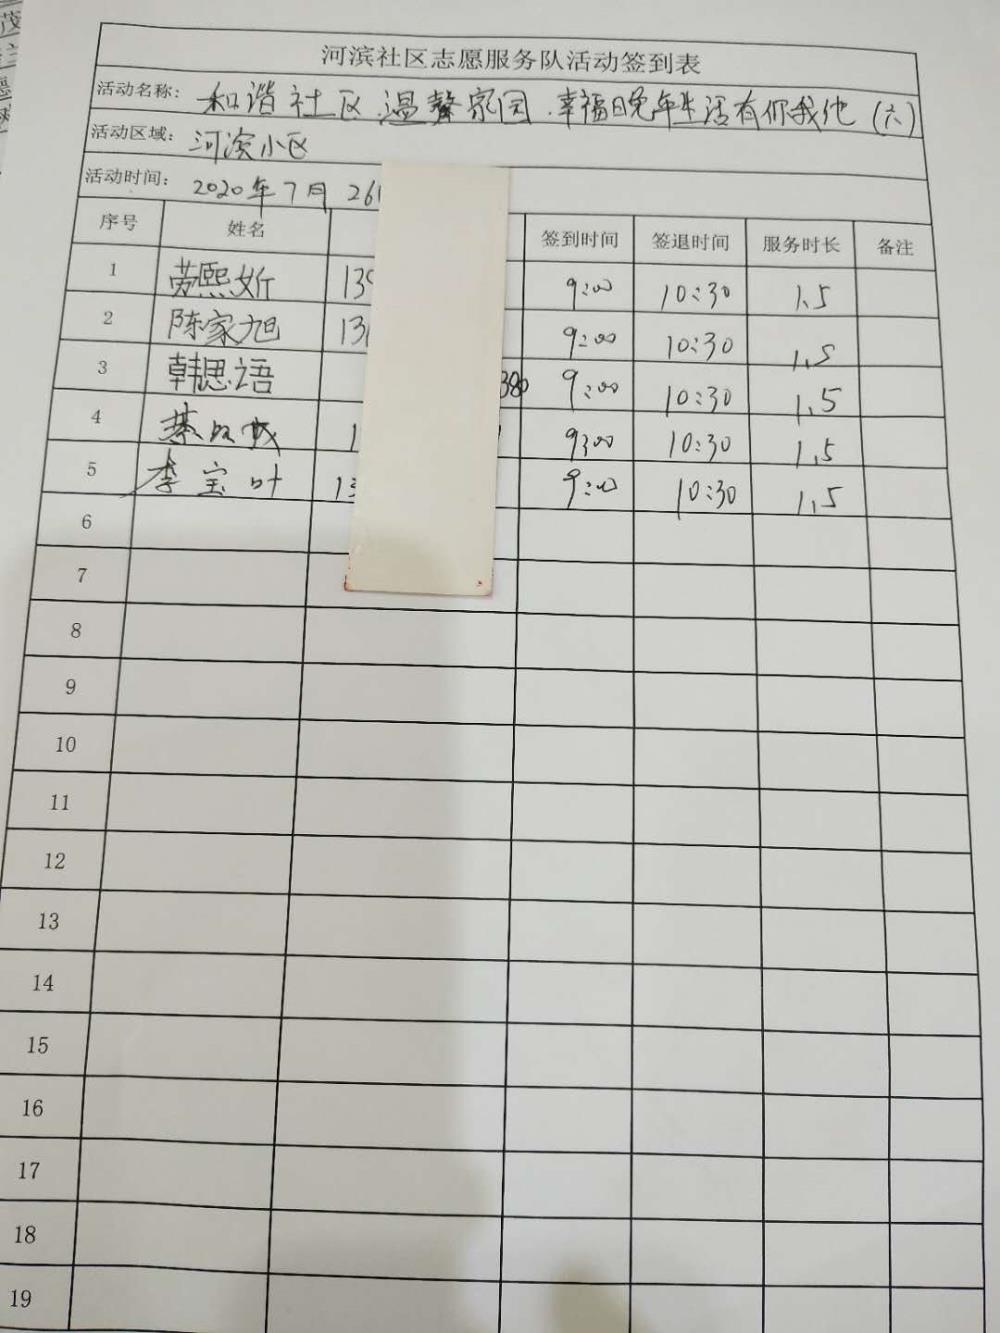 河滨社区志愿服务队活动签到表
活动名称： 和谐社区.温馨家园.幸福晚年生活有你我他（六）
活动区域： 河滨小区
活动时间： 2020年7月26
序号 姓名 签到时间 签退时间 服务时长 备注
1 劳熙妡 139 9:00 10:30 1.5
2 陈家旭 13 9:00 10:30 1.5
3 韩思语 380 9:00 10:30 1.5
4 1 9:00 10:30 1.5
5 李宝叶 13 9:00 10:30 1.5
6
7
8
9
10
11
12
13
14
15
16
17
18
19